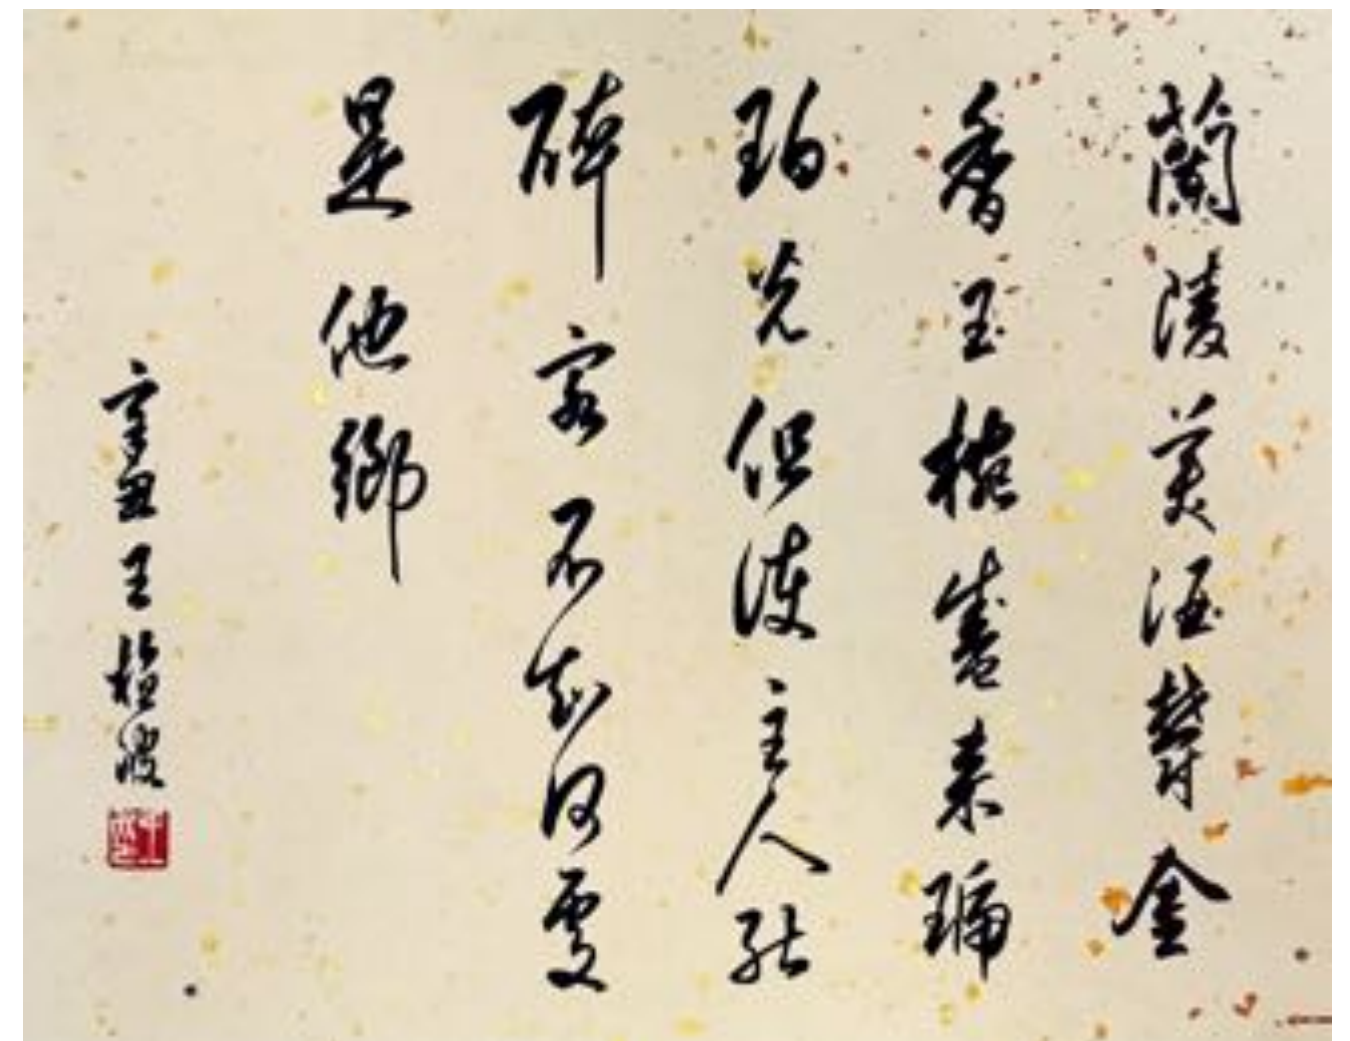 蘭陵美酒欝金
香玉椀盛来琥
珀光但使主人能
醉客不知何處
是他鄉
辛丑王植波